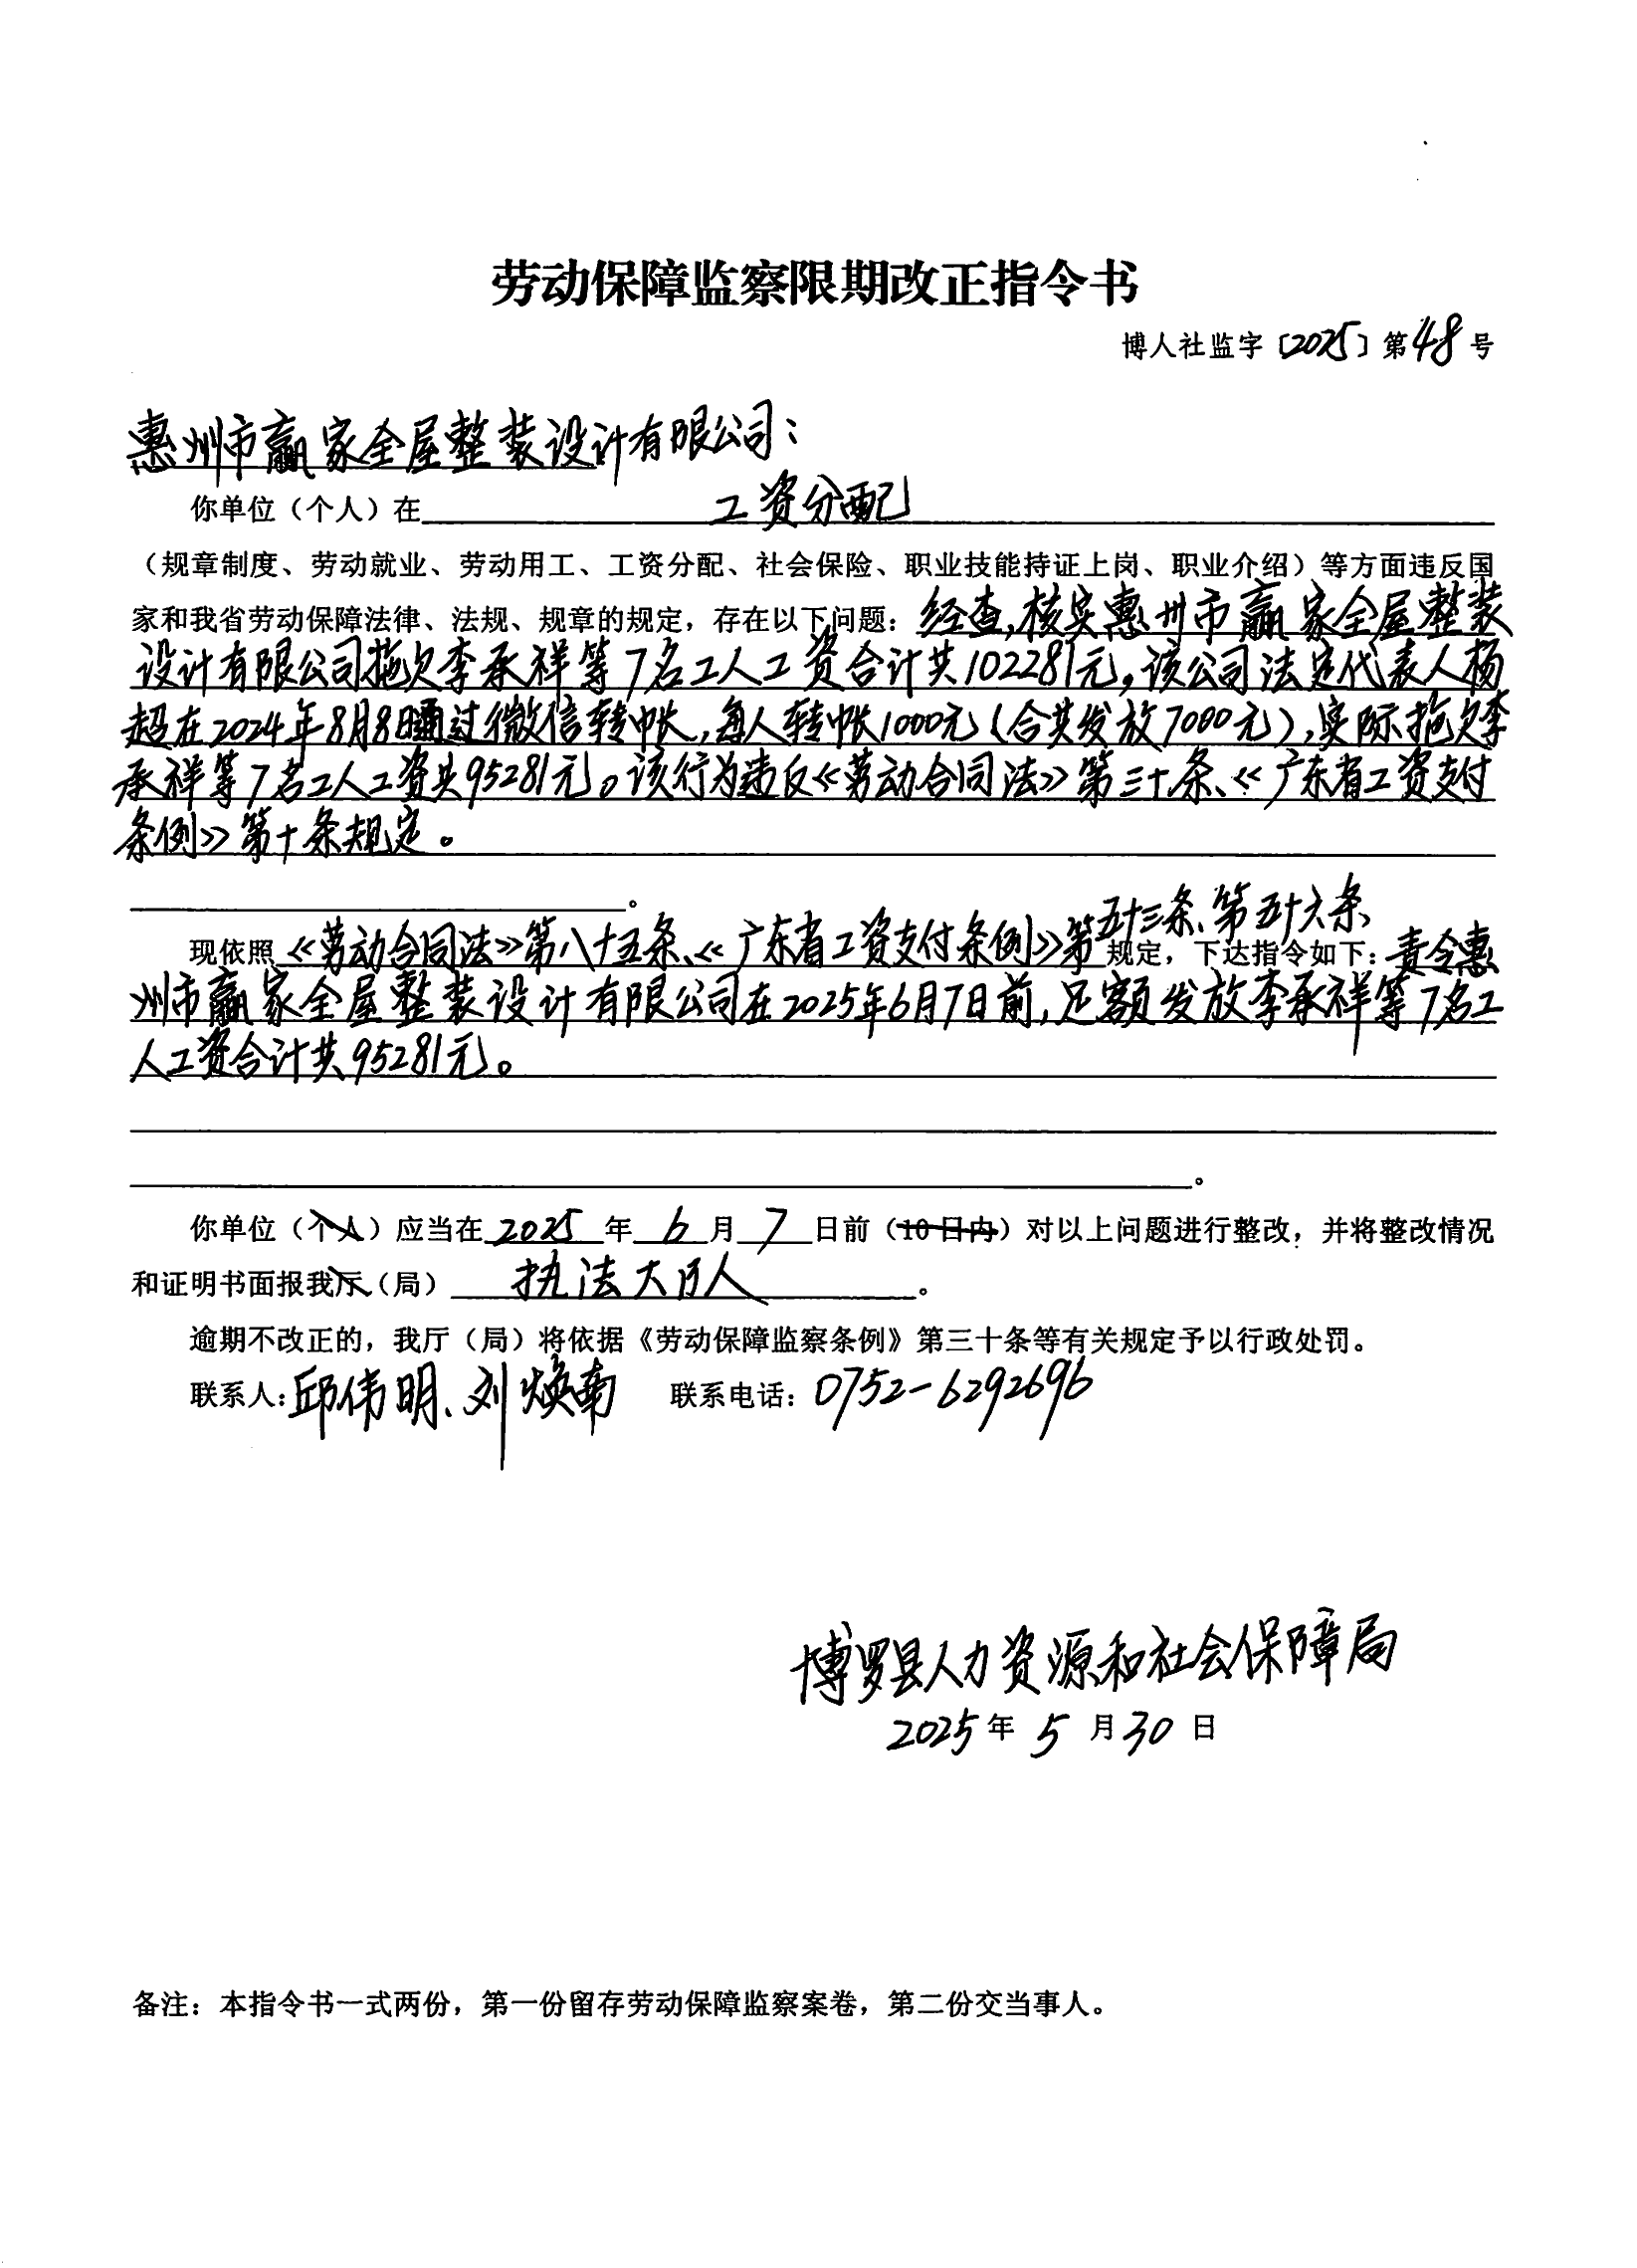 劳动保障监察限期改正指令书
博人社监字〔2025〕第48号
惠州市赢家全屋整装设计有限公司：
你单位（个人）在 工资分配
（规章制度、劳动就业、劳动用工、工资分配、社会保险、职业技能持证上岗、职业介绍）等方面违反国
家和我省劳动保障法律、法规、规章的规定，存在以下问题：经查，核实惠州市赢家全屋整装
设计有限公司拖欠李承祥等7名工人工资合计共102281元，该公司法定代表人杨
超在2024年8月8日通过微信转帐，每人转帐1000元（合共发放7000元），实际拖欠李
承祥等7名工人工资共95281元。该行为违反《劳动合同法》第三十条、《广东省工资支付
条例》第十条规定。
。
现依照《劳动合同法》第八十五条、《广东省工资支付条例》第五十三条、第五十六条规定，下达指令如下：责令惠
州市赢家全屋整装设计有限公司在2025年6月7日前，足额发放李承祥等7名工
人工资合计共95281元。
。
你单位（个人）应当在2025年6月7日前（10日内）对以上问题进行整改，并将整改情况
和证明书面报我厅（局）执法大队。
逾期不改正的，我厅（局）将依据《劳动保障监察条例》第三十条等有关规定予以行政处罚。
联系人：邱伟明、刘焕南 联系电话：0752-6292696
博罗县人力资源和社会保障局
2025年5月30日
备注：本指令书一式两份，第一份留存劳动保障监察案卷，第二份交当事人。